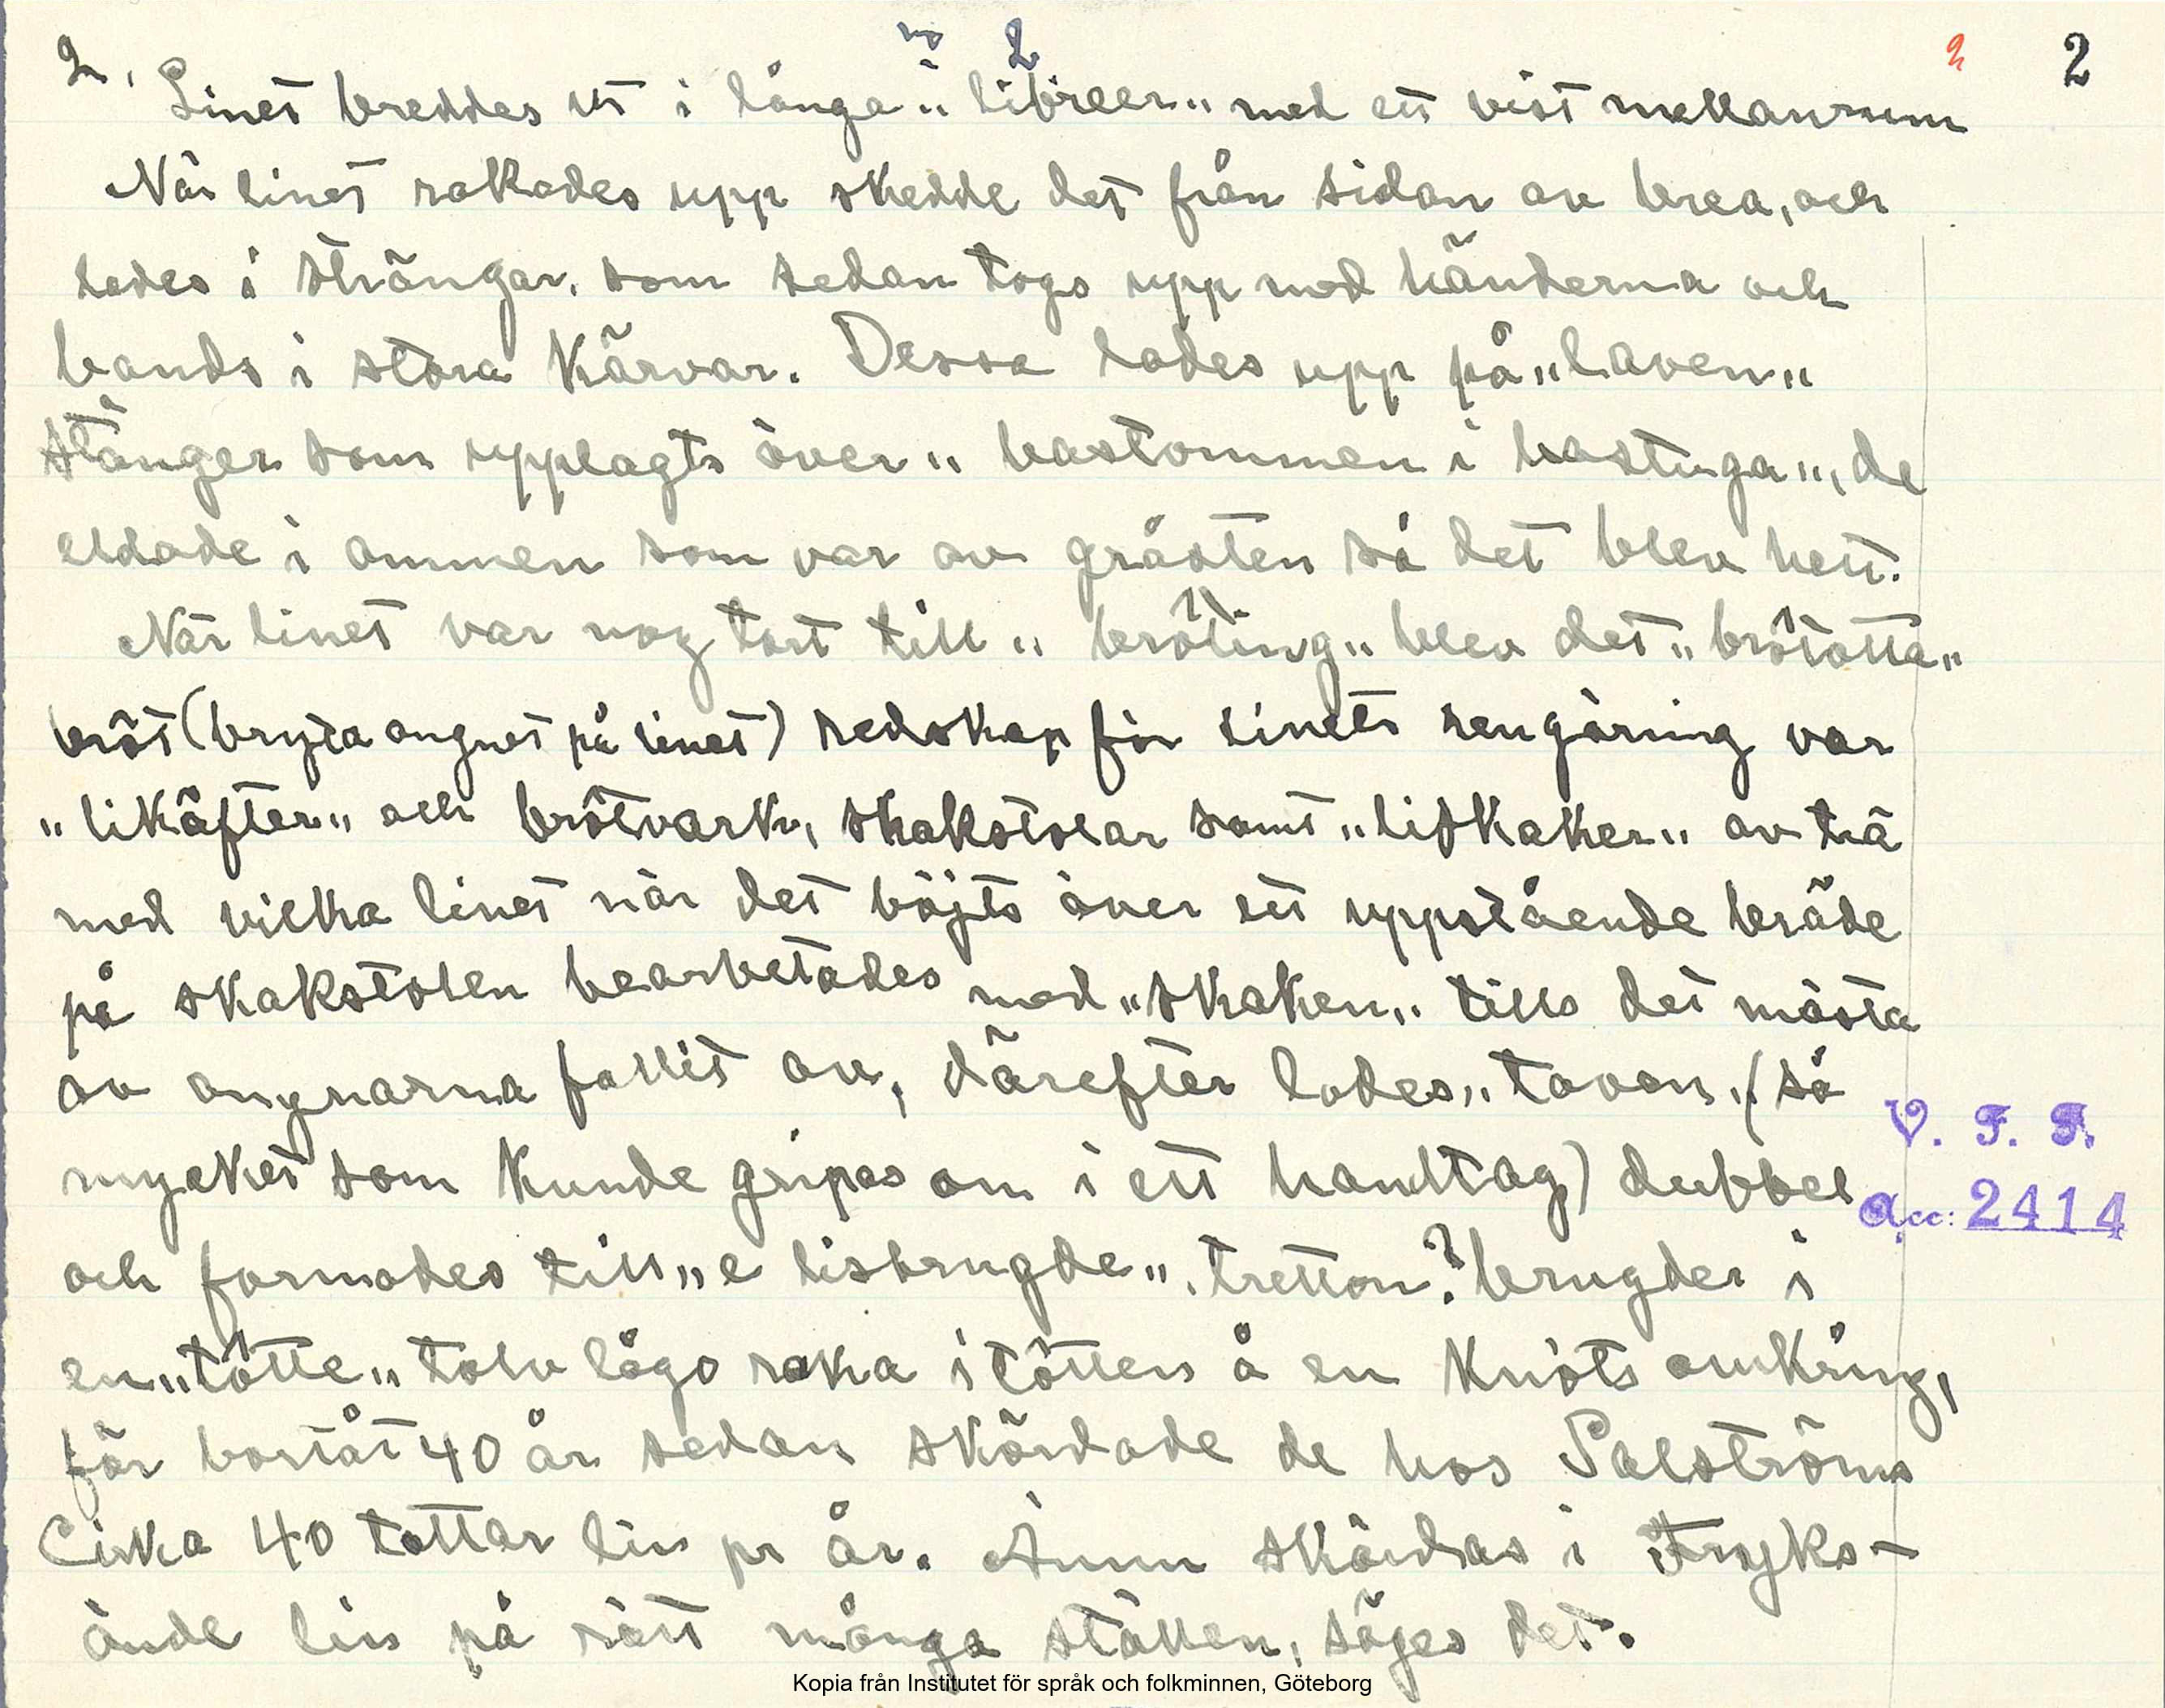 2. 2 2 2
Linet breddes ut i långa "libreer" med ett vist mellanrum
När linet rakades upp skedde det från sidan av brea, och
lades i strängar, som sedan togs upp med händerna och
bands i stora kärvar. Dessa lades upp på "laven"
stänger som upplagts över "bastommen i bastuga", de
eldade i ommen som var av gråsten så det blev hett.
När linet var nog tort till "bröting" blev det "brötatta"
bröt (bryta angnet på linet) redskap för linets rengöring var
"likäfter" och brötvark, skakstolar samt "liskaker" av trä
med vilka linet när det böjts över ett uppstående bräde
på skakstolen bearbetades med "skaken" tills det mästa
av angnarna fallit av, därefter lades "tavan" (så
mycket som kunde gripas om i ett handtag) dubbel
och formades till "e lisbrugde". tretton? brugder i
en "tötte" tolv lågo raka i tötten å en knöts omkring,
för bortåt 40 år sedan skördade de hos Salströms
Cirka 40 tottar lin pr år. Ännu skördas i Fryks-
ände lin på rätt många ställen, säges det.
V. F. F.
acc: 2414
Kopia från Institutet för språk och folkminnen, Göteborg